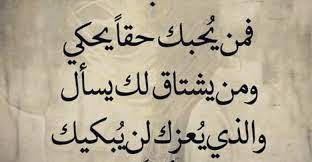 فمن يُحبك حقاً يحكي
ومن يشتاق لك يسأل
والذي يُعزك لن يُبكيك